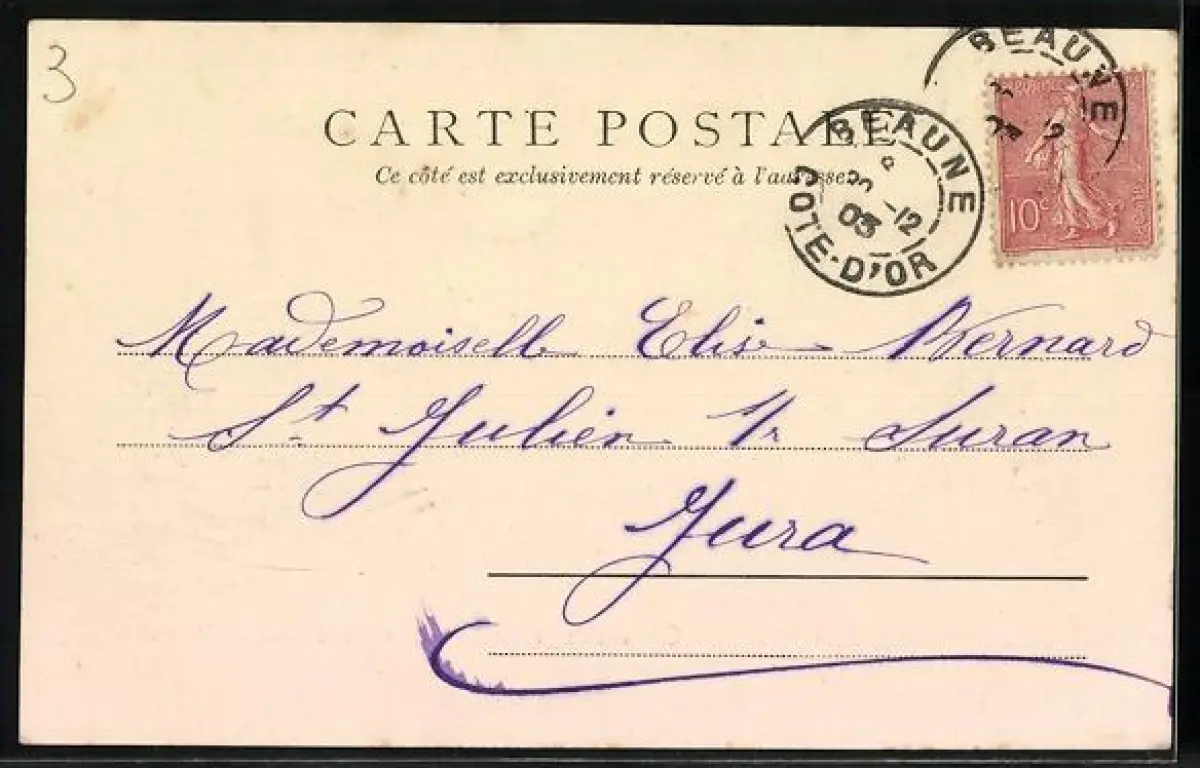 3
CARTE POSTALE
Ce côté est exclusivement réservé à l'adresse
BEAUNE
12
03
COTE-D'OR
BEAUNE
10c
Mademoiselle Elise Bernard
St Julien s/r Suran
Jura